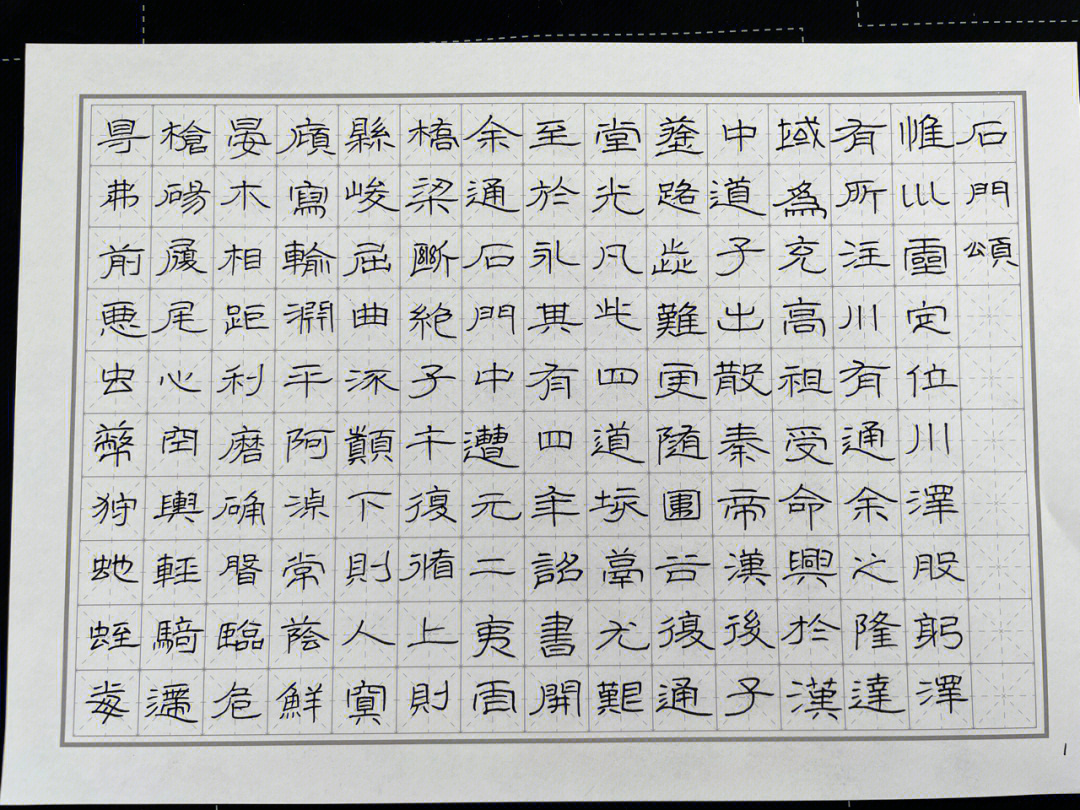 石門頌
惟巛靈定位川澤股躬澤
有所注川有通余之隆達
域為充高祖受命興於漢
中道子出散秦帝漢後子
塗路歮難更隨圍谷復通
堂光凡此四道垓鬲尤艱
至於永其有四年詔書開
余通石門中遭元二夷虐
橋梁斷絕子午復循上則
縣峻屈曲流顛下則人寞
廎寫輸淵平阿淖常蔭鮮
晏木相距利磨确磐臨危
槍碭履尾心空輿輕騎遰
㝵弗前惡虫弊狩虵蛭毒
1